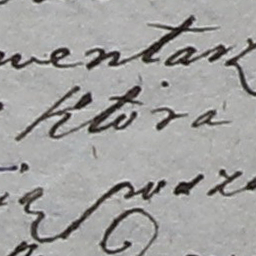 wentarz
która
się posz